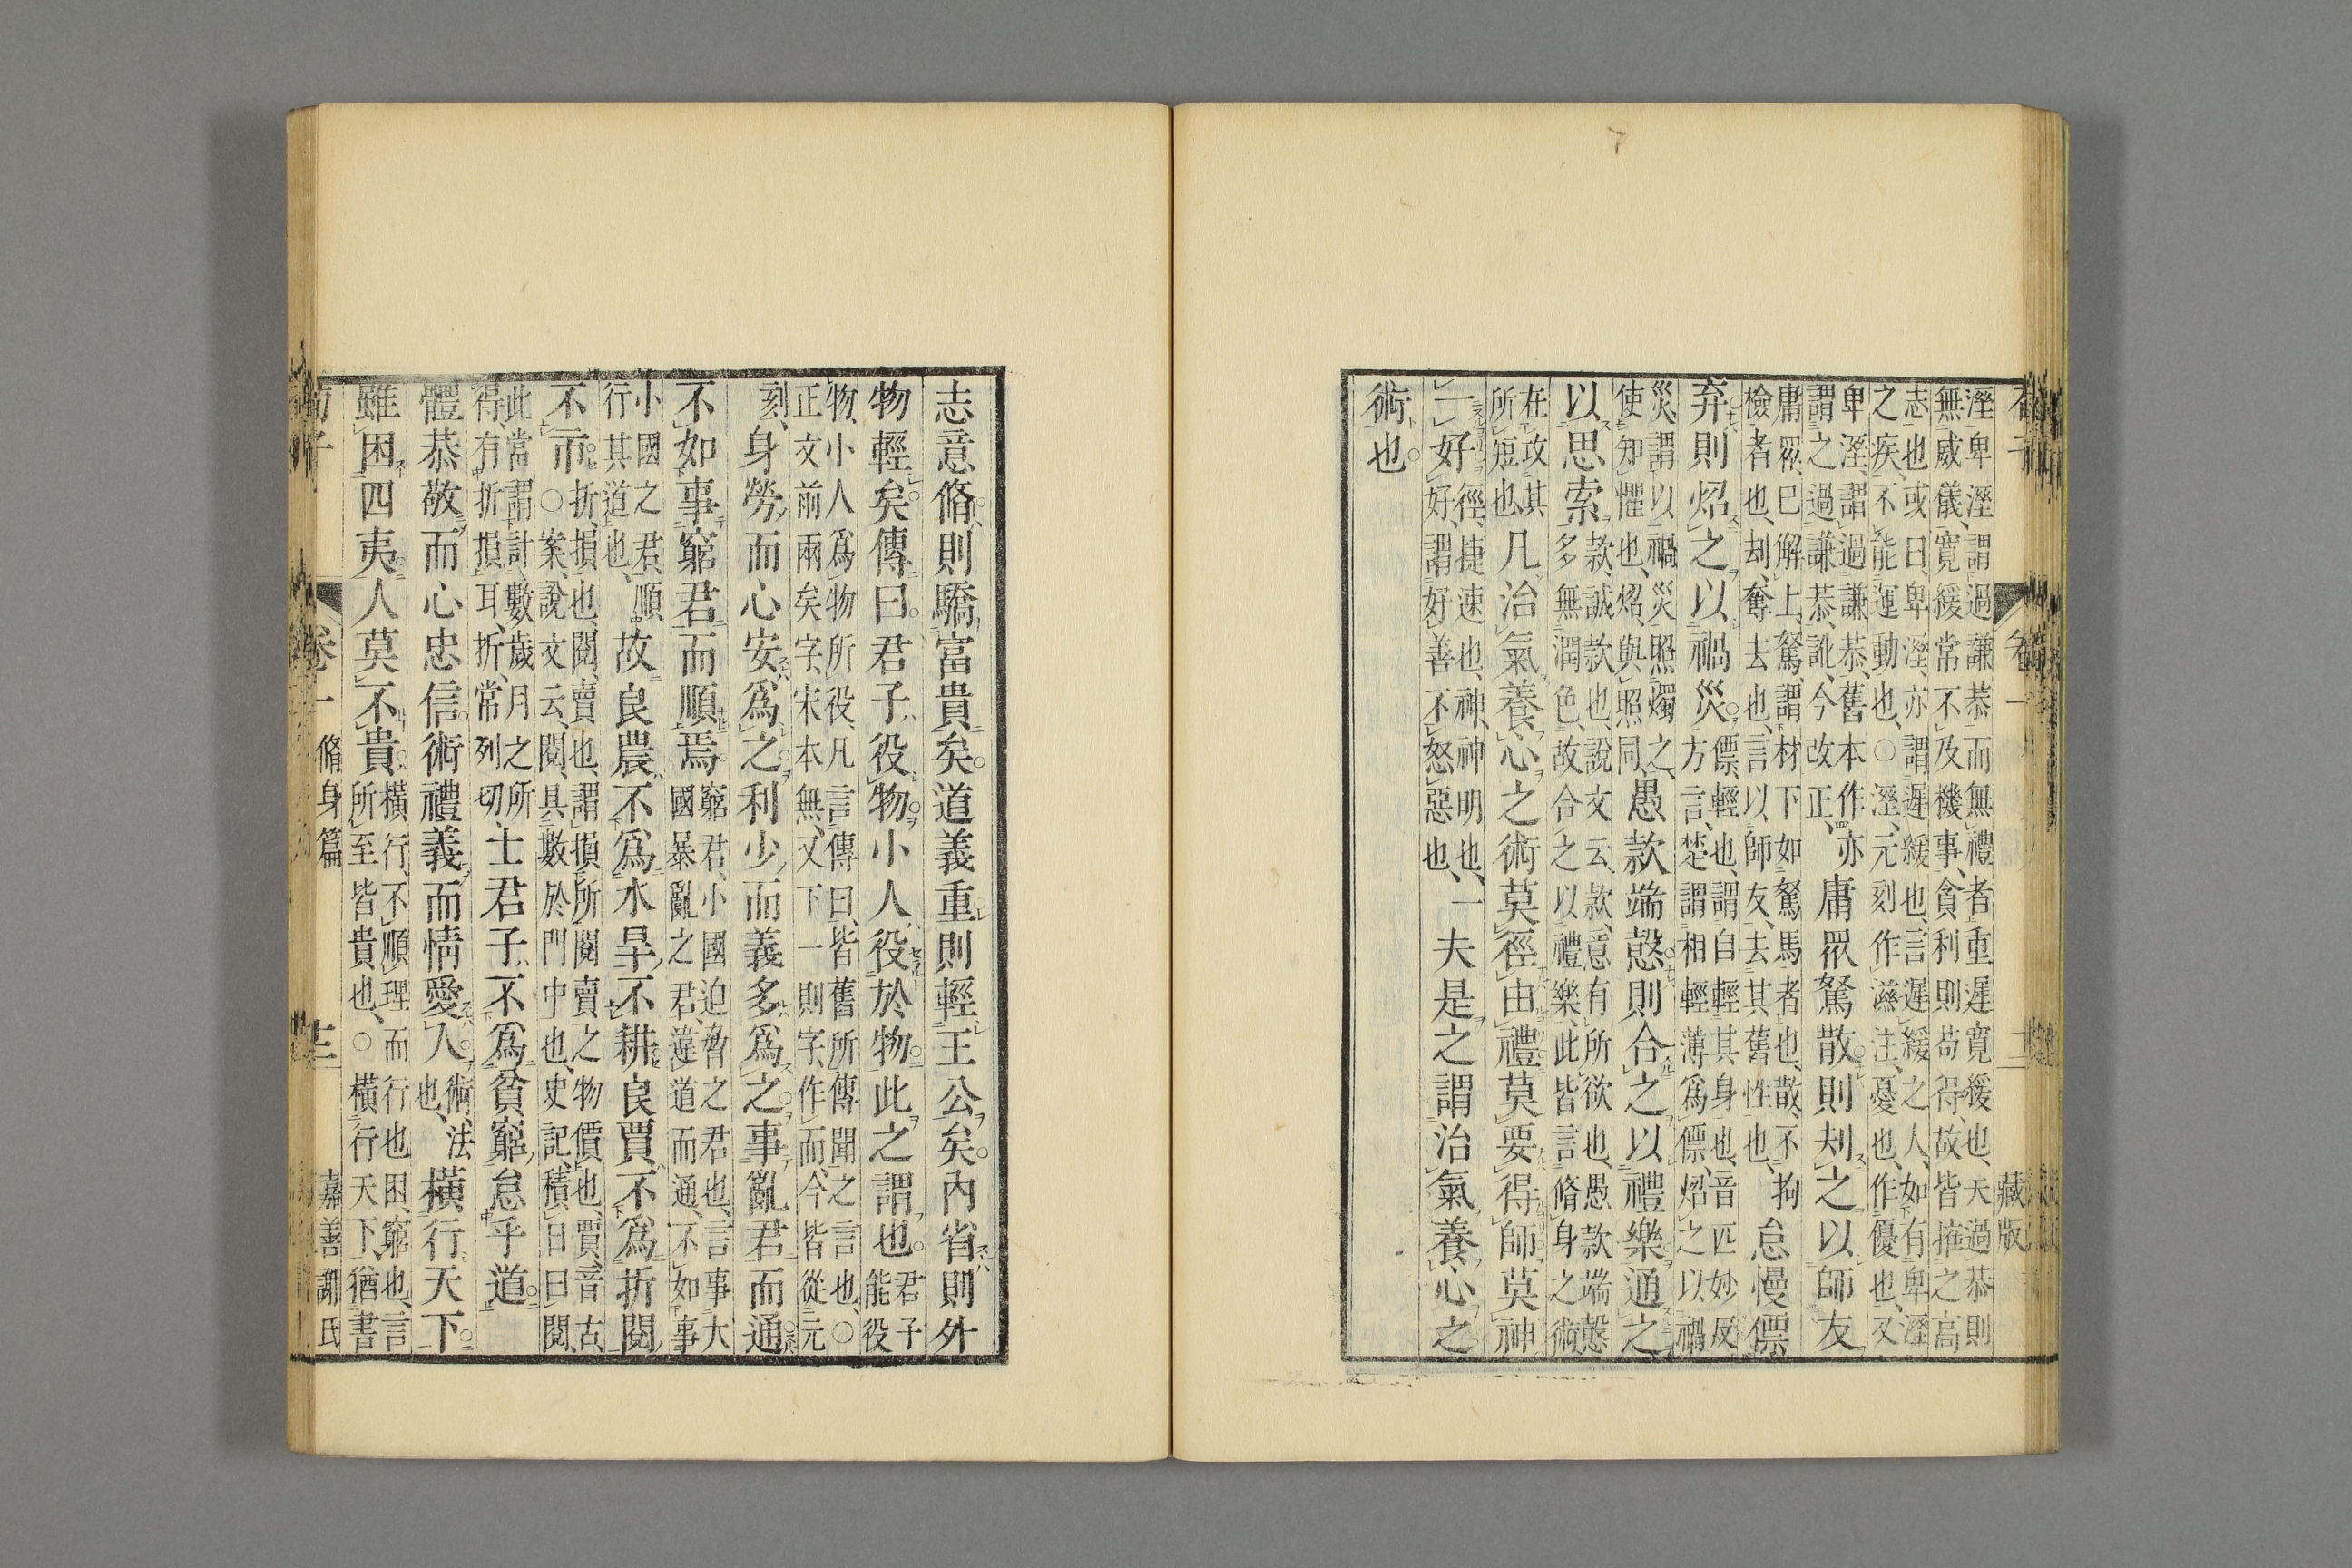 溼卑溼謂過謙恭而無禮者重遲寬緩也天過恭則
無威儀寬緩常不及機事貪利則苟得故皆摧之高
志也或曰卑溼亦謂遲緩也言遲緩之人如有卑溼
之疾不能運動也○溼元刻作滋注憂也作優也又
卑溼謂過謙恭舊本作亦
謂之過謙恭訛今改正
庸眾駑散則刦之以師友
庸眾已解上駑謂材下如駑馬者也散不拘
檢者也刦奪去也言以師友去其舊性也
怠慢僄
弃則炤之以禍災
僄輕也謂自輕其身也音匹妙反
方言楚謂相輕薄爲僄炤之以禍
災謂以禍災照燭之
使知懼也炤與照同
愚款端愨則合之以禮樂通之
以思索
款誠款也說文云款意有所欲也愚款端愨
多無潤色故合之以禮樂此皆言脩身之術
在攻其
所短也
凡治氣養心之術莫徑由禮莫要得師莫神
一好
徑捷速也神神明也
好謂好善不怒惡也
一夫是之謂治氣養心之
術也
藏版
志意脩則驕富貴矣道義重則輕王公矣內省則外
物輕矣傳曰君子役物小人役於物此之謂也
君子
能役
物小人爲物所役凡言傳曰皆舊所傳聞之言也○
正文前兩矣字宋本無又下一則字作而今皆從元
刻
身勞而心安爲之利少而義多爲之事亂君而通
不如事窮君而順焉
窮君小國迫脅之君也言事大
國暴亂之君違道而通不如事
小國之君順
行其道也
故良農不爲水旱不耕良賈不爲折閱
不市
折損也閱賣也謂損所閱賣之物價也賈音古
○案說文云閱具數於門中也史記積日曰閱
此常謂計數歲月之所
得有折損耳折常列切
士君子不爲貧窮怠乎道
體恭敬而心忠信術禮義而情愛人
術法
也
橫行天下
雖困四夷人莫不貴
橫行不順理而行也困窮也言
所至皆貴也○橫行天下猶書
荀子
卷一
脩身篇
十二
嘉善謝氏